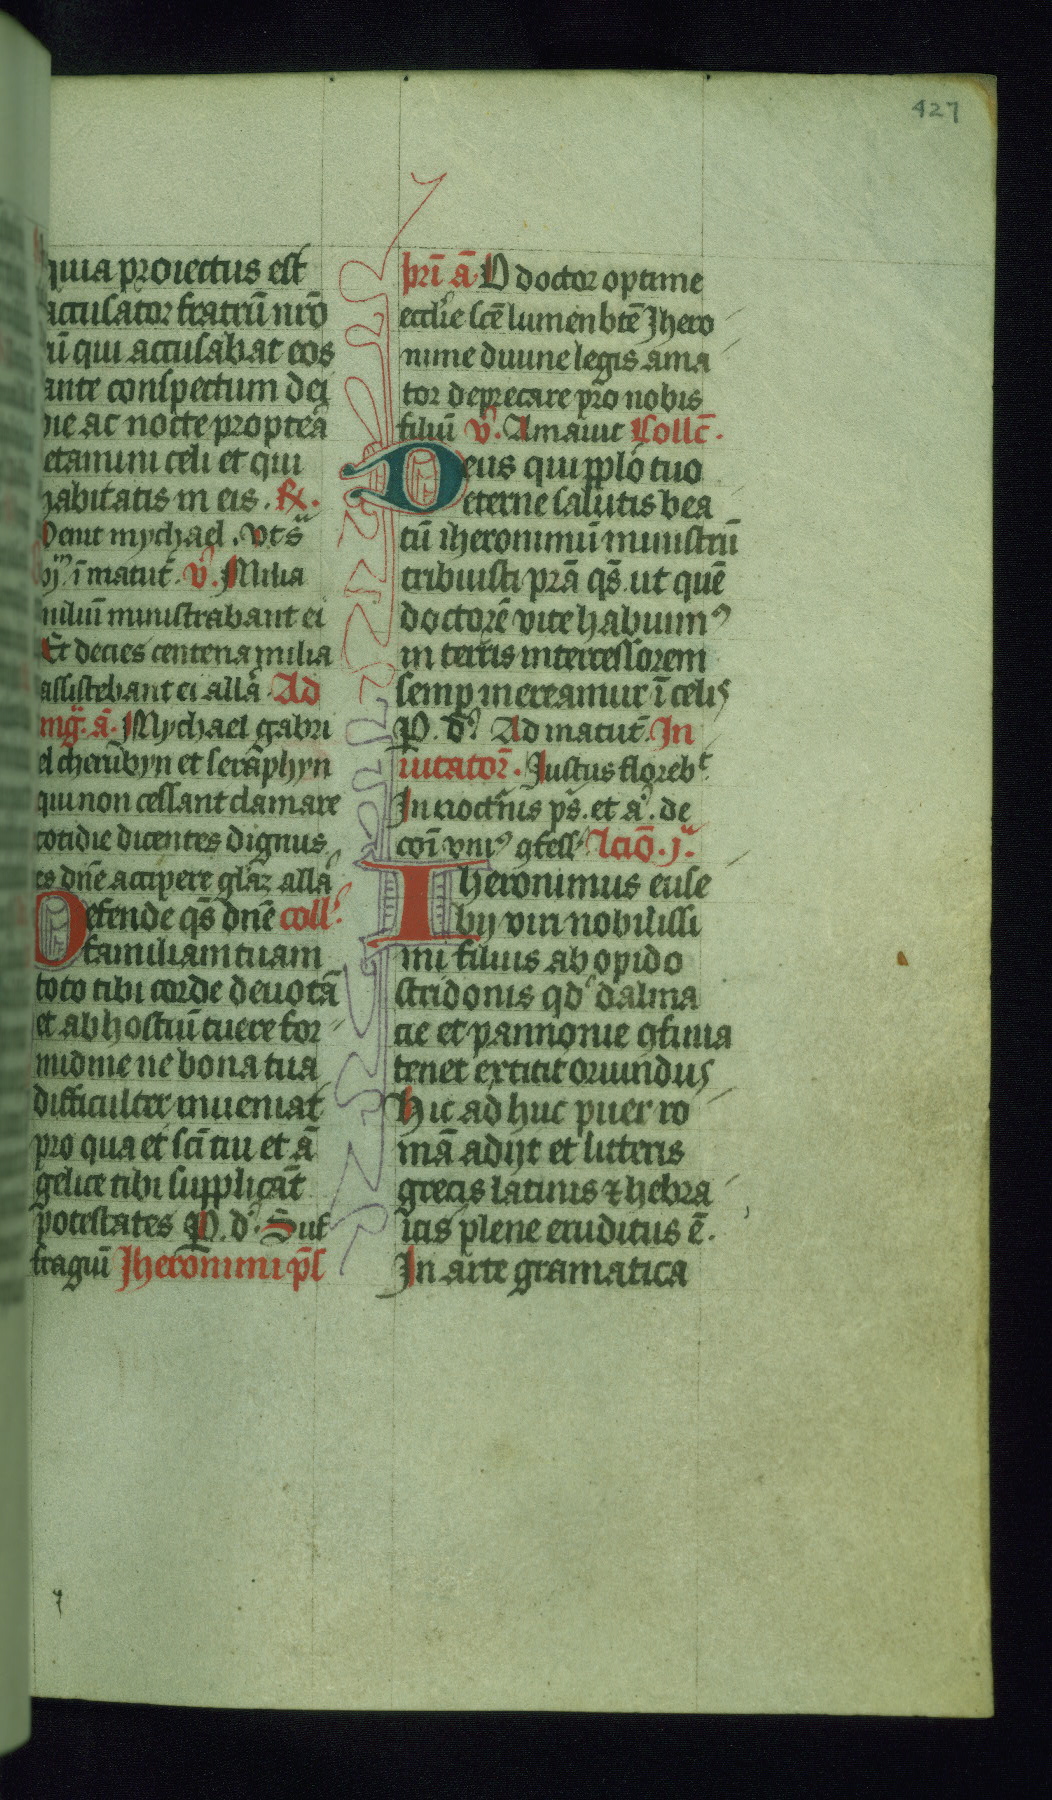 427
quia proiectus est
accusator fratrū nrō
rū qui accusabat eos
ante conspectum dei
die ac nocte proptea
letamini celi et qui
habitatis in eis. R̷.
Venit mychael. vt s
ij ī matut̄. v̄. Milia
miliū ministrabant ei
Et decies centena milia
assistebant ei alla Ad
mg̃. ā. Mychael gabri
el cherūbyn et seraphyn
qui non cessant clamare
cotidie dicentes dignus
es dn̄e accipere glāz alla
Defende qs̄ dn̄e coll
familiam tuam
toto tibi corde deuotā
et ab hostiū tuere for
midine ne bona tua
difficulter inueniat
pro qua et sci tui et ā
gelice tibi supplicāt
potestates P. d. Suf
fragiū Iheronimi p̄s
pri ā O doctor optime
eccl̄ie scē lumen btē Jhero
nime diuine legis ama
tor deprecare pro nobis
filiū v̄. Amauit Collc̄.
Deus qui pplo tuo
eterne salutis bea
tū iheronimū ministrū
tribuisti prā qs̄ ut quē
doctorē vite habuim⁹
in terris intercessorem
semp mereamur ī celis
P. d. Ad matut̄. In
uitator̄. Justus floreb
In noct̄nis ps̄. et ā. de
coī vni⁹ ꝯfess Lctiō. j.
Iheronimus euse
bij viri nobilissi
mi filius ab opido
stridonis qd dalma
cie et pannonie ꝯfinia
tenet extitit oriundus
Hic ad huc puer ro
mā adijt et litteris
grecis latinis ⁊ hebra
icis plene eruditus ē.
In arte gramatica